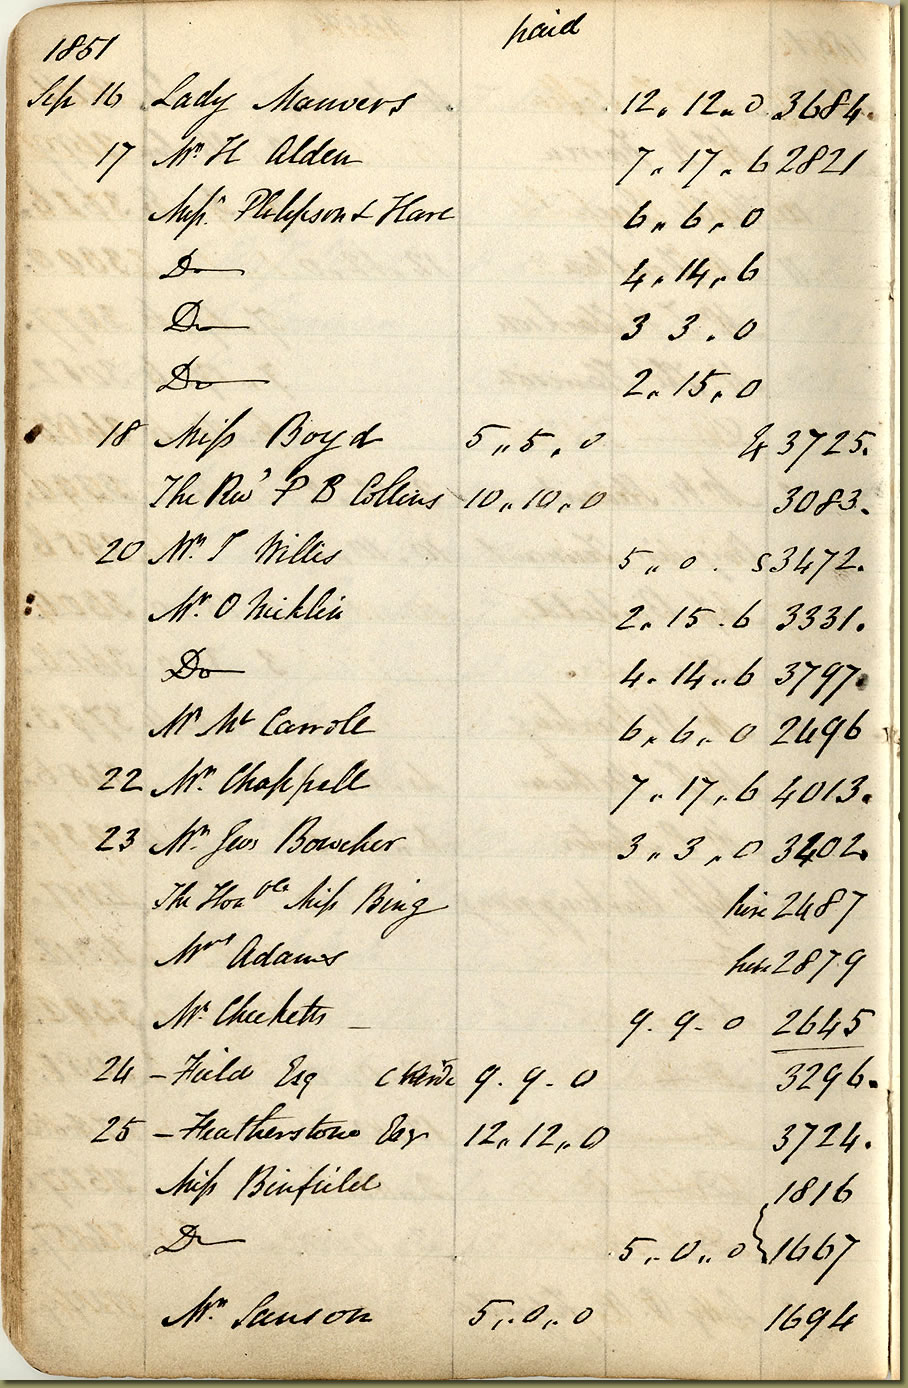 paid
1851
Sep 16 Lady Manvers 12.12.0 3684.
17 Mr H Alden 7.17.6 2821
Miss Phlipson & Hare 6.6.0
Do 4.14.6
Do 3 3.0
Do 2.15.0
18 Miss Boyd 5.5.0 3725.
The Revd P B Collins 10.10.0 3083.
20 Mr T Willis 5.0. S 3472.
Mr O Nicklin 2.15.6 3331.
Do 4.14.6 3797.
Mr Mc Carroll 6.6.0 2496
22 Mr Chappell 7.17.6 4013.
23 Mr Geo Bowcher 3.3.0 3402.
The Honble Miss Bing hire 2487
Mrs Adams hire 2879
Mr Checketts 9.9.0 2645
24 – Field Esq 9.9.0 3296.
25 – Featherstone Esqr 12.12.0 3724.
Miss Binfield 1816
Do 5.0.0 1667
Mr Sanson 5.0.0 1694